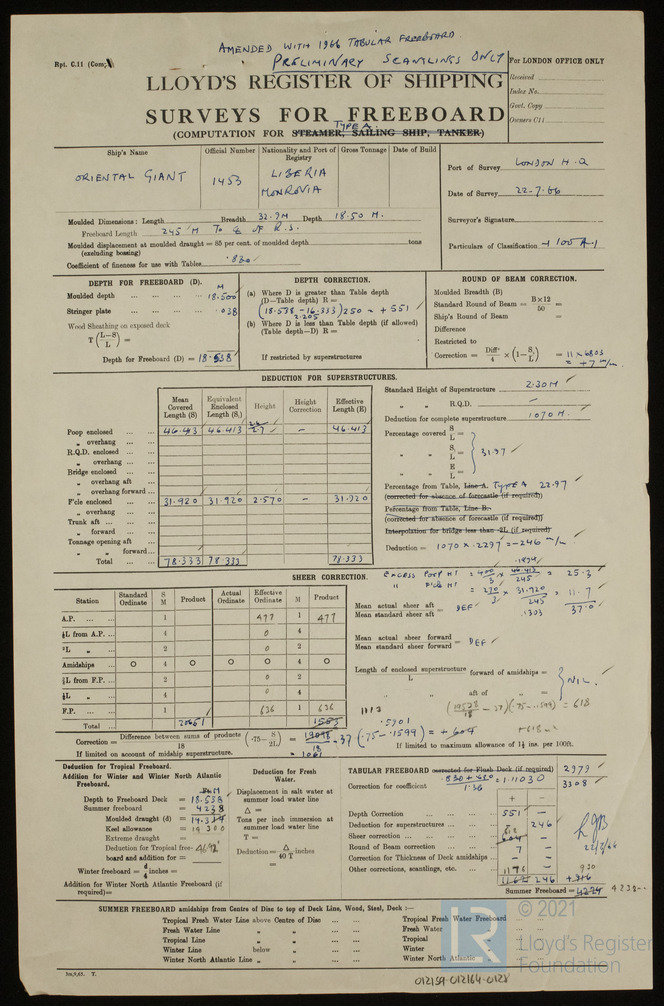 AMENDED WITH 1966 TABULAR FREEBOARD
PRELIMINARY SCANTLINGS ONLY
Rpt. C.11 (Com
For LONDON OFFICE ONLY
Received
Index No.
Govt. Copy
Owners C11
LLOYD'S REGISTER OF SHIPPING
SURVEYS FOR FREEBOARD
TYPE A
(COMPUTATION FOR STEAMER, SAILING SHIP, TANKER)
Ship's Name
Official Number
Nationality and Port of Registry
Gross Tonnage
Date of Build
ORIENTAL GIANT
1453
LIBERIA
MONROVIA
Port of Survey LONDON H.Q
Date of Survey 22-7-66
Surveyor's Signature
Particulars of Classification + 100 A.1
Moulded Dimensions: Length Breadth 32.9M Depth 18.50 M.
Freeboard Length 245 M To ₵ of R.S.
Moulded displacement at moulded draught = 85 per cent. of moulded depth tons
(excluding bossing)
Coefficient of fineness for use with Tables .830
DEPTH FOR FREEBOARD (D).
M
Moulded depth 18.500
Stringer plate .038
Wood Sheathing on exposed deck
T (L-S/L) =
Depth for Freeboard (D) = 18.538
DEPTH CORRECTION.
(a) Where D is greater than Table depth
(D—Table depth) R =
(18.538 - 16.333) 250 = + 551
2.205
(b) Where D is less than Table depth (if allowed)
(Table depth—D) R =
If restricted by superstructures
ROUND OF BEAM CORRECTION.
Moulded Breadth (B)
Standard Round of Beam = B×12/50 =
Ship's Round of Beam =
Difference
Restricted to
Correction = Diffce/4 × (1 - S/L) = 11 × 6803
= + 7 m/m.
DEDUCTION FOR SUPERSTRUCTURES.
Mean Covered Length (S)
Equivalent Enclosed Length (S₁)
Height
Height Correction
Effective Length (E)
Poop enclosed 46.413 46.413 - 46.413
„ overhang
R.Q.D. enclosed
„ overhang
Bridge enclosed
„ overhang aft
„ overhang forward
F'cle enclosed 31.920 31.920 2.570 - 31.920
„ overhang
Trunk aft
„ forward
Tonnage opening aft
„ „ forward
Total 78.333 78.333 78.333
Standard Height of Superstructure 2.30M
„ „ R.Q.D. -
Deduction for complete superstructure 1070 M.
Percentage covered S/L =
„ S₁/L = 31.97
„ E/L =
Percentage from Table, Line A. TYPE A 22.97
(corrected for absence of forecastle (if required))
Percentage from Table, Line B.
(corrected for absence of forecastle (if required))
Interpolation for bridge less than ·2L (if required)
Deduction = 1070 × .2297 = -246 m/m
SHEER CORRECTION.
EXCESS POOP HT = 400/3 × 46.413/245 = 25.3
.1894
„ F'CLE HT = 270/3 × 31.920/245 = 11.7
.1303
37.0
Station
Standard Ordinate
S M
Product
Actual Ordinate
Effective Ordinate
M
Product
A.P. 1 477 1 477
⅙L from A.P. 4 0 4
⅓L „ 2 0 2
Amidships O 4 O O O 4 O
⅓L from F.P. 2 0 2
⅙L „ 4 0 4
F.P. 1 636 1 636
Total 20661
Mean actual sheer aft
Mean standard sheer aft = DEF
Mean actual sheer forward
Mean standard sheer forward = DEF
Length of enclosed superstructure/L forward of amidships =
„ aft of „ =
NIL.
1113
(19528/18 - 37)(.75-.1599) = 618
.5901
Correction = Difference between sums of products/18 (.75 - S/2L) = 19098/18 - 37 (.75-.1599) = + 604
+618
= 1061
If limited on account of midship superstructure.
If limited to maximum allowance of 1½ ins. per 100ft.
Deduction for Tropical Freeboard.
Addition for Winter and Winter North Atlantic Freeboard.
Depth to Freeboard Deck = 18.538
Summer freeboard = 4238
Moulded draught (d) =
Keel allowance =
Extreme draught =
Deduction for Tropical freeboard and addition for =
Winter freeboard = d/4 inches =
Addition for Winter North Atlantic Freeboard (if required) =
Deduction for Fresh Water.
Displacement in salt water at summer load water line
Δ =
Tons per inch immersion at summer load water line
T =
Deduction = Δ/40 T inches
=
TABULAR FREEBOARD corrected for Flush Deck (if required) 2979
Correction for coefficient .830 + .680/1.36 = 1.11030 3308
+ -
Depth Correction 551 -
Deduction for superstructures - 246
Sheer correction 618
Round of Beam correction 7 -
Correction for Thickness of Deck amidships -
Other corrections, scantlings, etc.
930
246
Summer Freeboard = 4238
22/7/66
SUMMER FREEBOARD amidships from Centre of Disc to top of Deck Line, Wood, Steel, Deck :—
Tropical Fresh Water Line above Centre of Disc
Fresh Water Line „ „
Tropical Line „ „
Winter Line below „
Winter North Atlantic Line „ „
Tropical Fresh Water Freeboard
Fresh Water „
Tropical „
Winter „
Winter North Atlantic „
5m,9,65. T.
© 2021
LR
Lloyd's Register
Foundation
012159-012164-0128